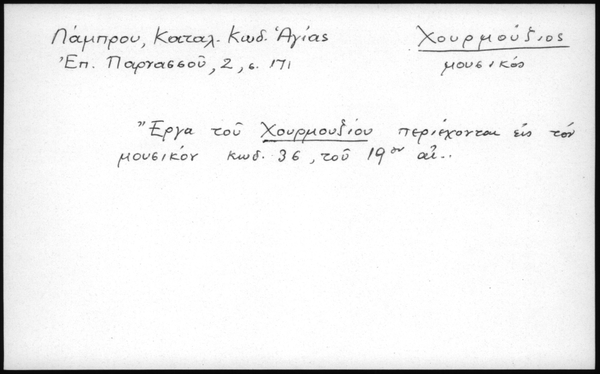 Λάμπρου, Καταλ. Κωδ. Ἁγίας Χουρμούζιος
Ἐπ. Παρνασσοῦ, 2, σ. 171 μουσικός
Ἔργα τοῦ Χουρμουζίου περιέχονται εἰς τόν
μουσικόν κωδ. 36, τοῦ 19ου αἰ..